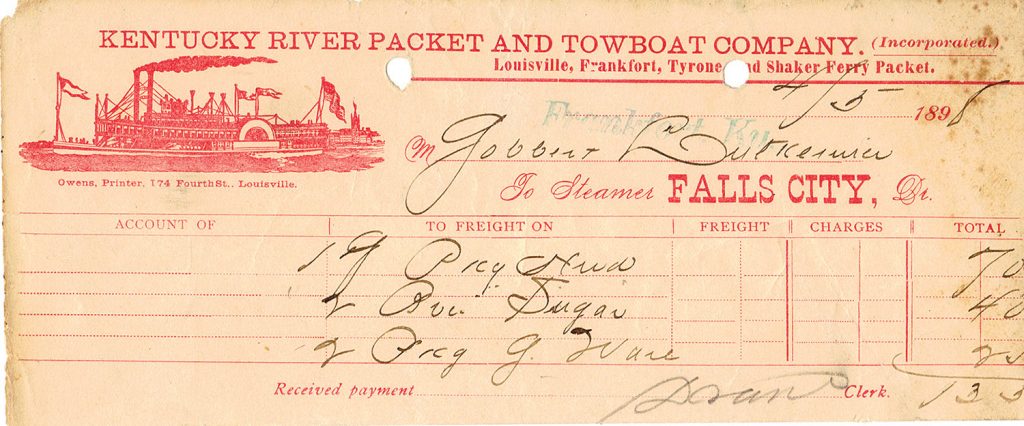 KENTUCKY RIVER PACKET AND TOWBOAT COMPANY. (Incorporated.)
Louisville, Frankfort, Tyrone and Shaker Ferry Packet.
4/5 1898
Frankfort, Ky.
M
Owens, Printer, 174 Fourth St., Louisville.
To Steamer FALLS CITY, Dr.
ACCOUNT OF TO FREIGHT ON FREIGHT CHARGES TOTAL
19 Pkg 70
2 Sugar 40
2 Pkg G. Ware
Received payment Clerk. 135